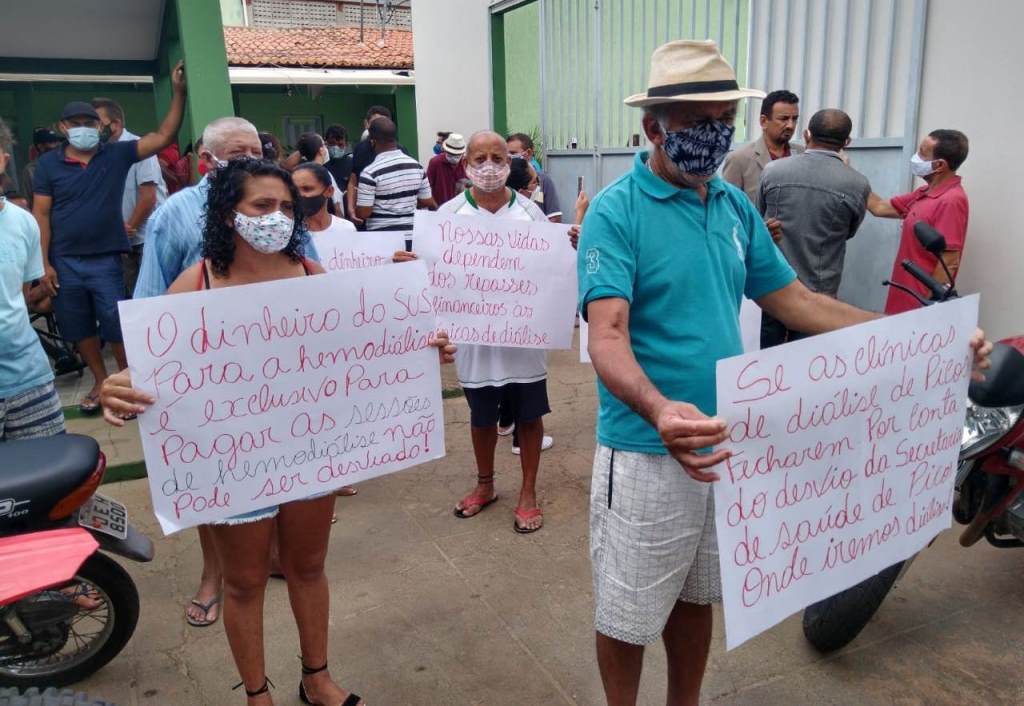 O dinheiro do SUS
Para a hemodiálise
é exclusivo Para
Pagar as sessões
de hemodiálise não
Pode ser desviado!
dinheiro
Nossas vidas
dependem
dos repasses
financeiros às
clínicas de diálise
Se as clínicas
de diálise de Picos
Fecharem Por conta
do desvio da Secretaria
de saúde de Picos
Onde iremos dialisar
3